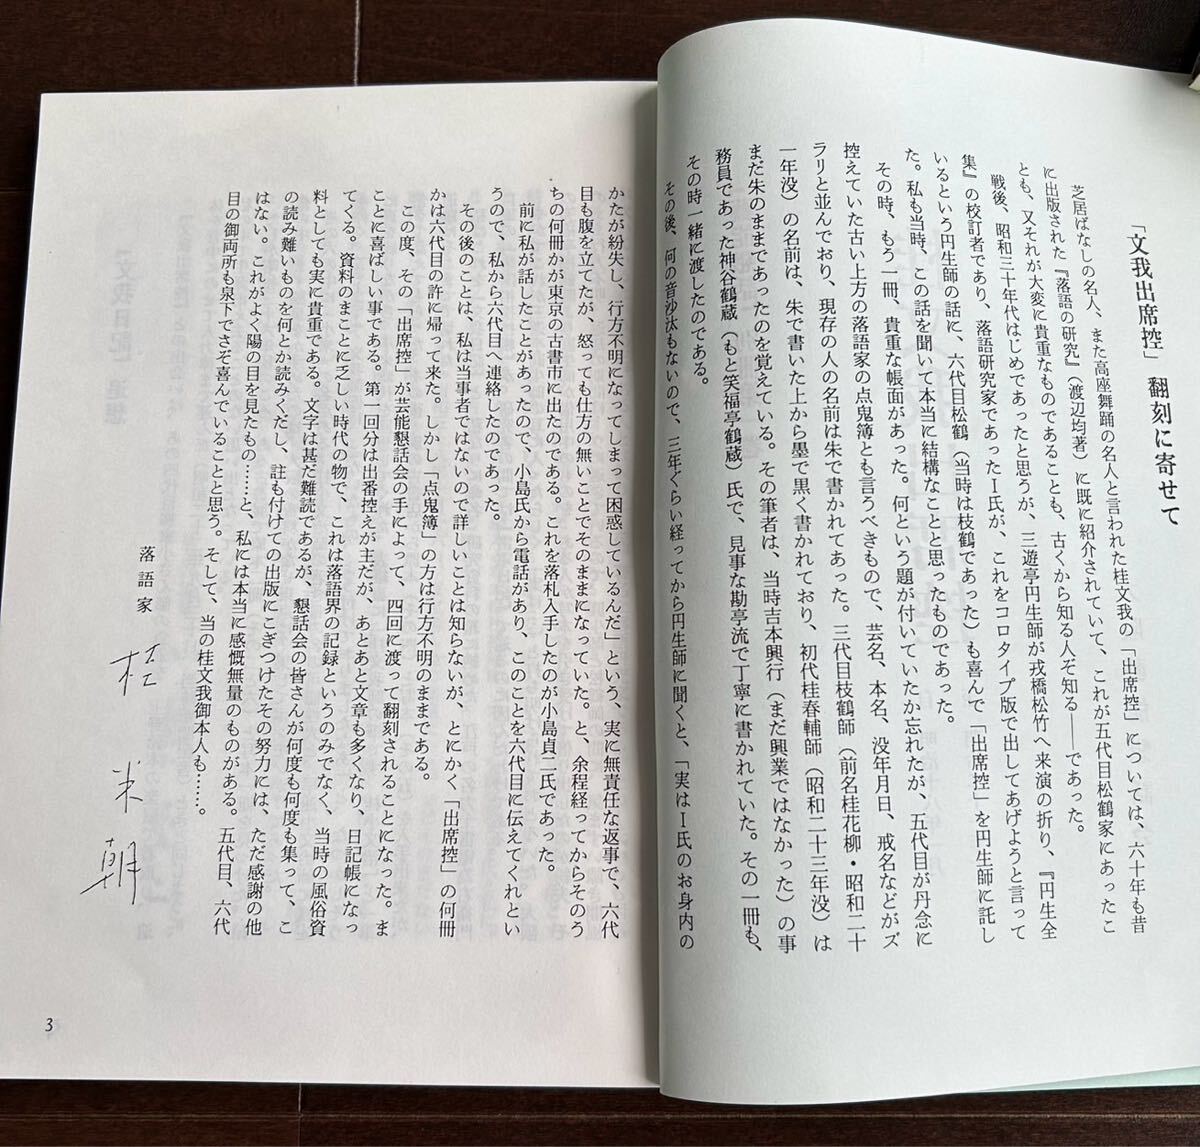 「文我出席控」 翻刻に寄せて
芝居ばなしの名人、また高座舞踊の名人と言われた桂文我の「出席控」については、六十年も昔
に出版された『落語の研究』（渡辺均著）に既に紹介されていて、これが五代目松鶴家にあったこ
とも、又それが大変に貴重なものであることも、古くから知る人ぞ知る――であった。
戦後、昭和三十年代はじめであったと思うが、三遊亭円生師が戎橋松竹へ来演の折り、『円生全
集』の校訂者であり、落語研究家であったＩ氏が、これをコロタイプ版で出してあげようと言って
いるという円生師の話に、六代目松鶴（当時は枝鶴であった）も喜んで「出席控」を円生師に託し
た。私も当時、この話を聞いて本当に結構なことと思ったものであった。
その時、もう一冊、貴重な帳面があった。何という題が付いていたか忘れたが、五代目が丹念に
控えていた古い上方の落語家の点鬼簿とも言うべきもので、芸名、本名、没年月日、戒名などがズ
ラリと並んでおり、現存の人の名前は朱で書かれてあった。三代目枝鶴師（前名桂花柳・昭和二十
一年没）の名前は、朱で書いた上から墨で黒く書かれており、初代桂春輔師（昭和二十三年没）は
まだ朱のままであったのを覚えている。その筆者は、当時吉本興行（まだ興業ではなかった）の事
務員であった神谷鶴蔵（もと笑福亭鶴蔵）氏で、見事な勘亭流で丁寧に書かれていた。その一冊も、
その時一緒に渡したのである。
その後、何の音沙汰もないので、三年ぐらい経ってから円生師に聞くと、「実はＩ氏のお身内の
かたが紛失し、行方不明になってしまって困惑しているんだ」という、実に無責任な返事で、六代
目も腹を立てたが、怒っても仕方の無いことでそのままになっていた。と、余程経ってからそのう
ちの何冊かが東京の古書市に出たのである。これを落札入手したのが小島貞二氏であった。
前に私が話したことがあったので、小島氏から電話があり、このことを六代目に伝えてくれとい
うので、私から六代目へ連絡したのであった。
その後のことは、私は当事者ではないので詳しいことは知らないが、とにかく「出席控」の何冊
かは六代目の許に帰って来た。しかし「点鬼簿」の方は行方不明のままである。
この度、その「出席控」が芸能懇話会の手によって、四回に渡って翻刻されることになった。ま
ことに喜ばしい事である。第一回分は出番控えが主だが、あとあと文章も多くなり、日記帳になっ
てくる。資料のまことに乏しい時代の物で、これは落語界の記録というのみでなく、当時の風俗資
料としても実に貴重である。文字は甚だ難読であるが、懇話会の皆さんが何度も何度も集って、こ
の読み難いものを何とか読みくだし、註も付けての出版にこぎつけたその努力には、ただ感謝の他
はない。これがよく陽の目を見たもの……と、私には本当に感慨無量のものがある。五代目、六代
目の御両所も泉下でさぞ喜んでいることと思う。そして、当の桂文我御本人も……。
落語家 桂 米朝
3